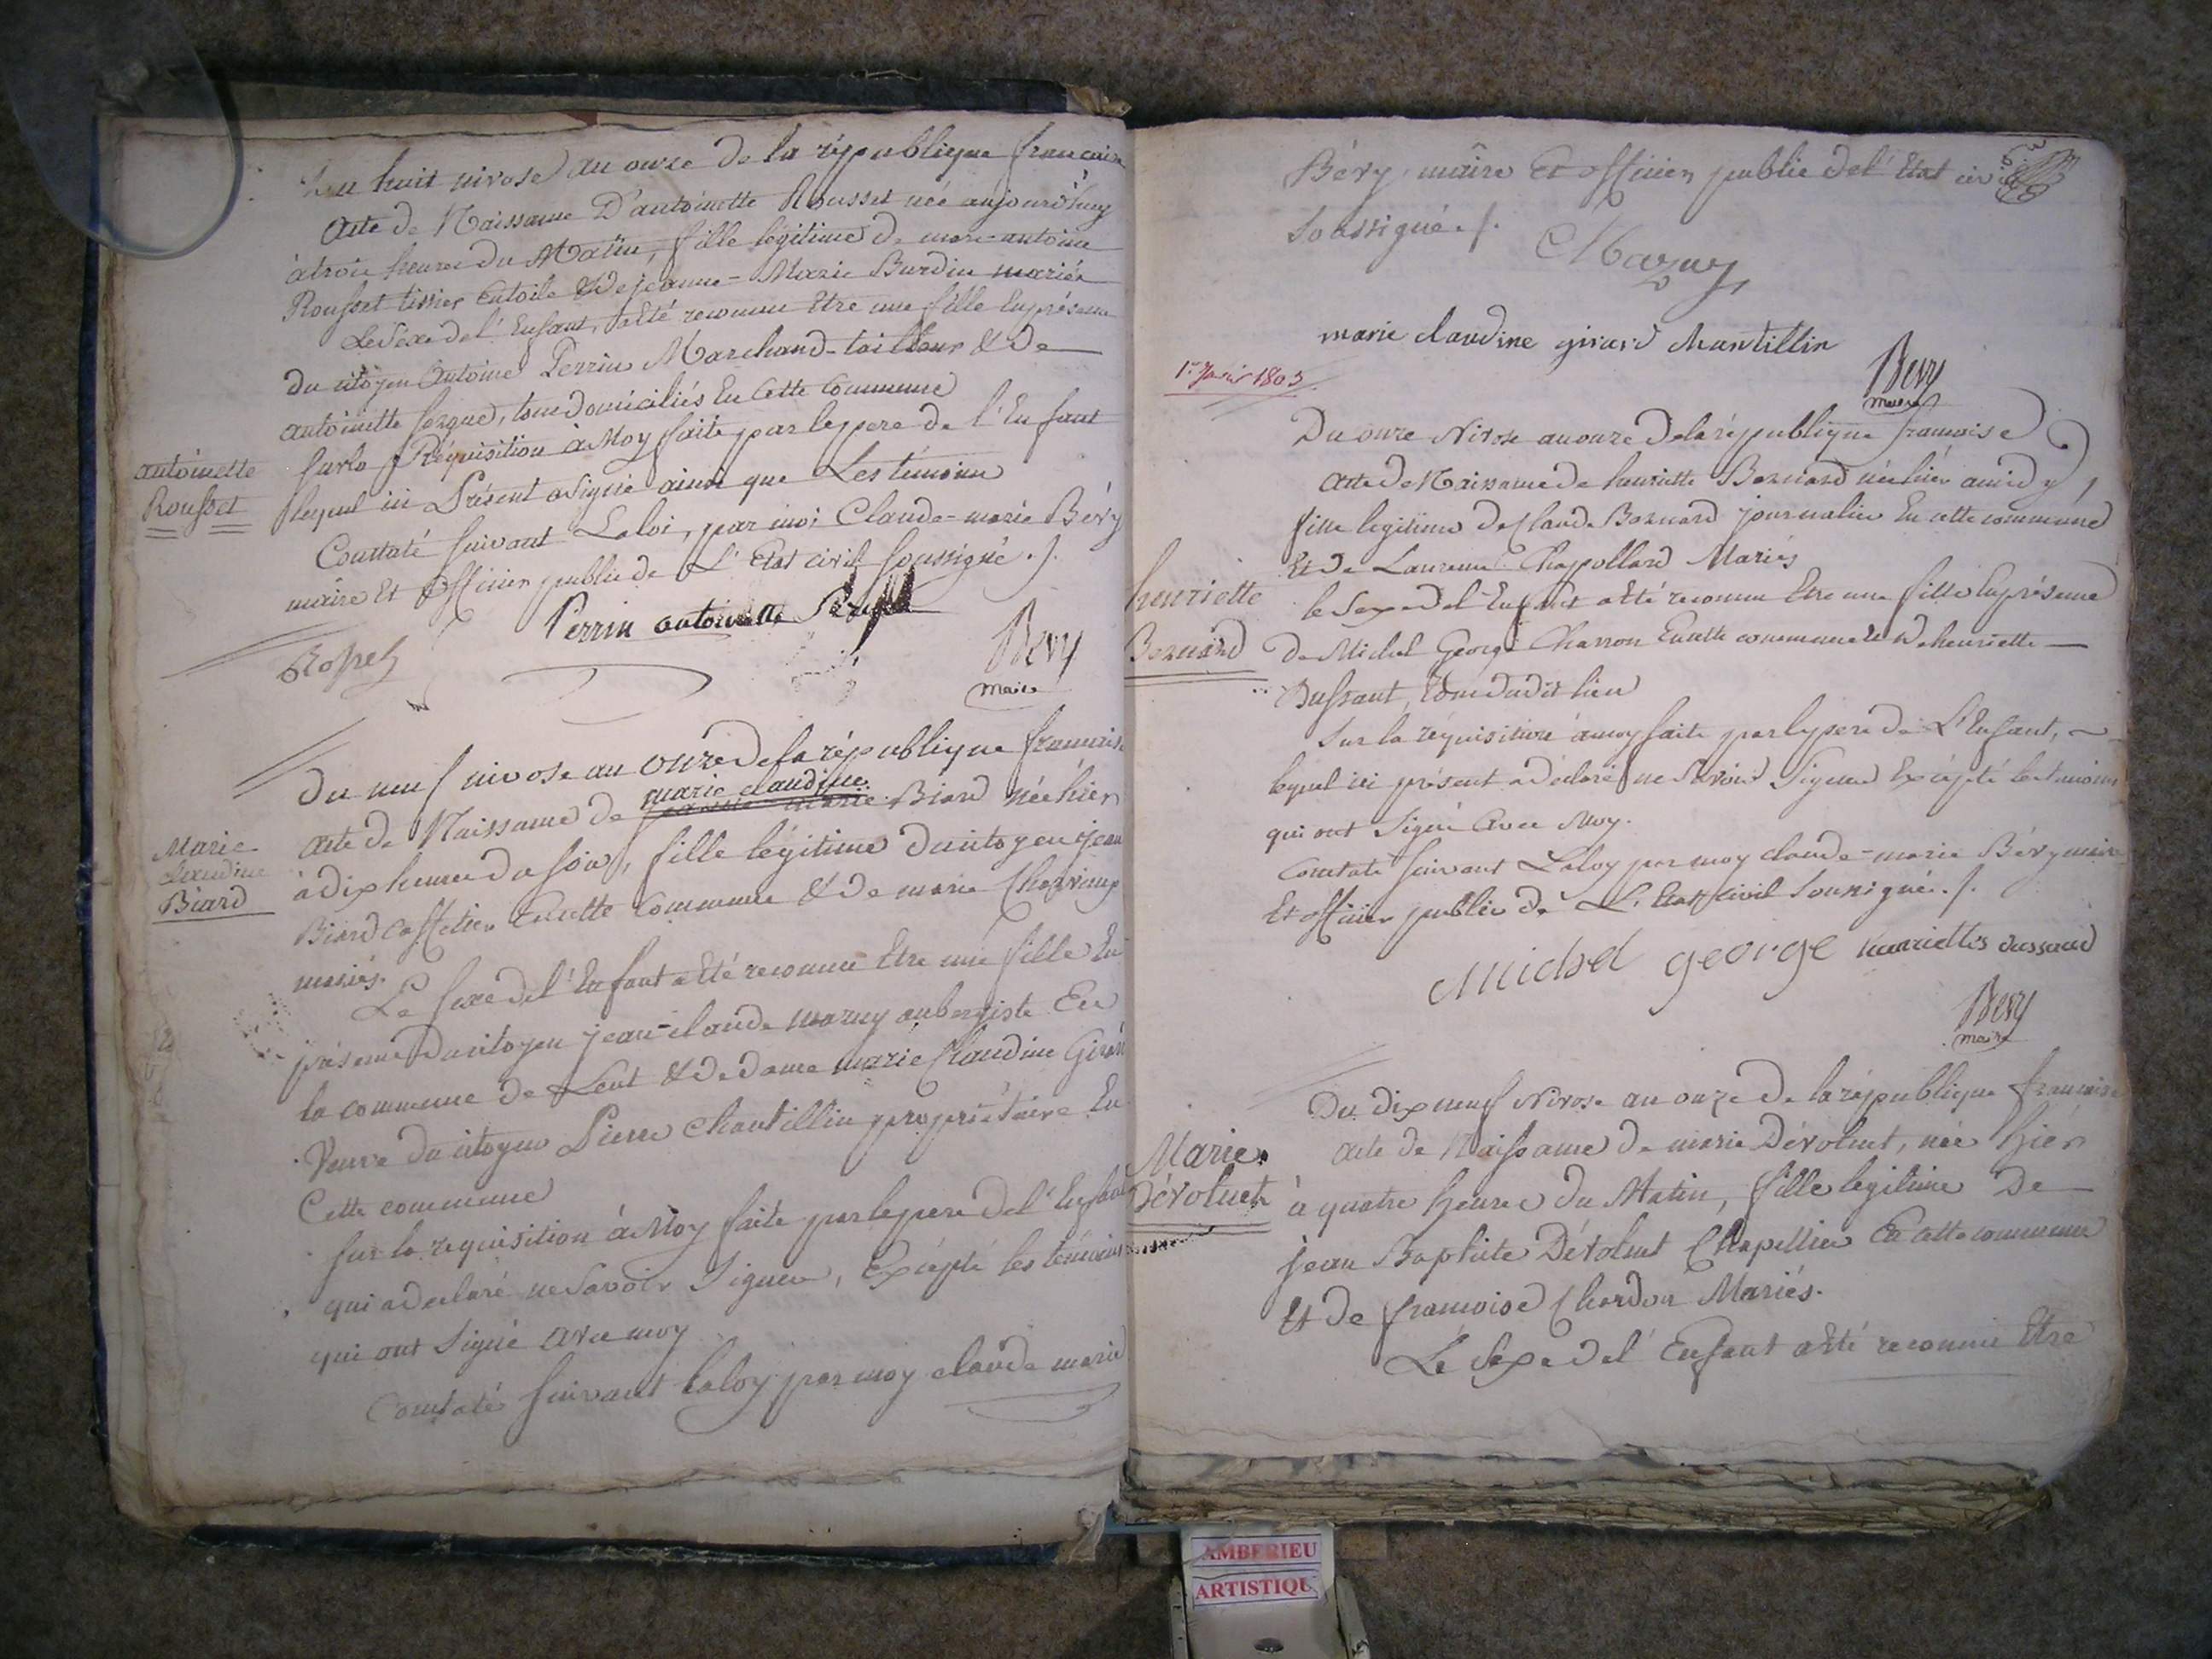 Du huit nivose an onze de la république francaise
Acte de Naissance D'antoinette Rousset née aujourd'huy
à trois heures du Matin, fille légitime de marc-antoine
Rousset tissier Entoile & de jeanne-Marie Burdin mariés
Le Sexe de l'Enfant, a été reconnu Etre une fille En présence
du citoyen Antoine Perrin Marchand-tailleur & de
antoinette, tous domiciliés En Cette Commune
antoinette
Rousset
Sur la Réquisition à Moy faite par le pere de l'Enfant
lequel ici Présent a Signé ainsi que Les témoins
Constaté suivant La loi, par moi Claude-marie Béry
maire Et Officier public de L'Etat civil soussigné ./.
Perrin antoinette
Rosset
Bery
maire
Du neuf nivose an onze de la république francaise
marie claudine
Acte de Naissance de marie Biard née hier
Marie
claudine
Biard
à dix heures du soir, fille légitime du citoyen jean
Biard caffetier En cette Commune & de marie
mariés.
Le sexe de l'Enfant a été reconnu Etre une fille En
présence du citoyen jean-claude mazuy aubergiste En
la commune de Lent & de dame marie Claudine Girard
Veuve du citoyen Pierre Chantillin propriétaire En
Cette commune
Sur la requisition à Moy faite par le pere de l'Enfant
qui a declaré ne Savoir Signer, Excepté les témoins
qui ont Signé avec moy
Constaté suivant la loy par moy claude marie
Béry maire Et officier public de l'Etat civil
Soussigné ./.
Mazuy
marie claudine girard chantillin
Bery
maire
1er Janvier 1803
Du onze Nivose an onze de la république francoise
Acte de Naissance de henriette Bernard née hier a midy,
fille legitime de Claude Bernard journalier En cette commune
Et de Laurence Chapolland Mariés
henriette
Bernard
le Sexe de l'Enfant a été reconnu Etre une fille En présence
de Michel George Charron En cette commune & de henriette
Dussaut, tous dudit lieu
Sur la réquisition à moy faite par le pere de L'Enfant,
lequel ici présent a déclaré ne Savoir Signer Excepté les témoins
qui ont Signé avec Moy.
Constaté suivant La loy par moy claude-marie Béry maire
Et officier public de L'Etat civil Soussigné ./.
michel george henriette dussaud
Bery
maire
Du dix neuf Nivose an onze de la république francaise
Marie
Dévoluet
Acte de Naissance de marie Dévoluet, née hier
à quatre heures du Matin, fille legitime De
jean Baptiste Dévoluet Chapellier En cette commune
Et de francoise Chardon Mariés.
Le Sexe de l'Enfant a été reconnu Etre
AMBERIEU
ARTISTIQU